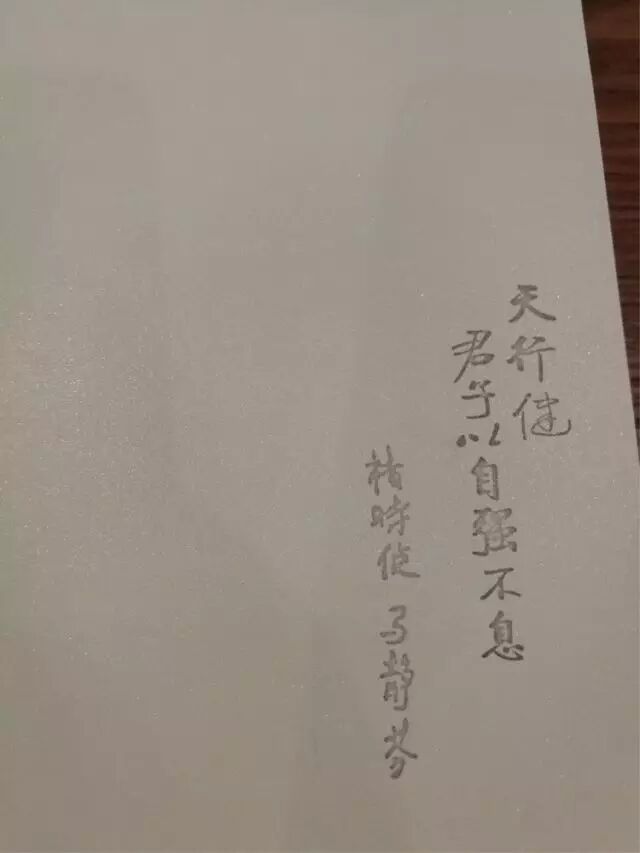 天行健
君子以自强不息
褚時健 马静芬